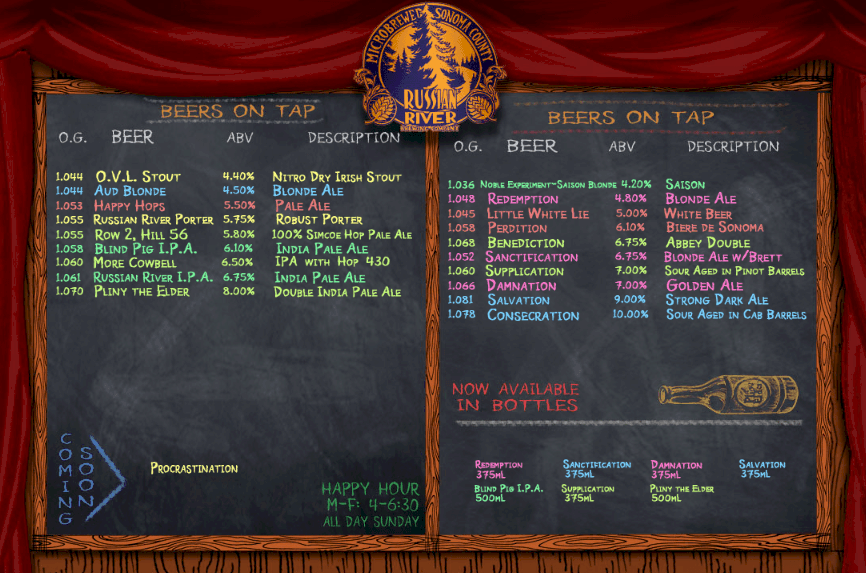 MICROBREWED SONOMA COUNTY
RUSSIAN
RIVER
BREWING COMPANY
BEERS ON TAP
O.G. BEER ABV DESCRIPTION
1.044 O.V.L. STOUT 4.40% NITRO DRY IRISH STOUT
1.044 AUD BLONDE 4.50% BLONDE ALE
1.053 HAPPY HOPS 5.50% PALE ALE
1.055 RUSSIAN RIVER PORTER 5.75% ROBUST PORTER
1.055 ROW 2, HILL 56 5.80% 100% SIMCOE HOP PALE ALE
1.058 BLIND PIG I.P.A. 6.10% INDIA PALE ALE
1.060 MORE COWBELL 6.50% IPA WITH HOP 430
1.061 RUSSIAN RIVER I.P.A. 6.75% INDIA PALE ALE
1.070 PLINY THE ELDER 8.00% DOUBLE INDIA PALE ALE
COMING
SOON
PROCRASTINATION
HAPPY HOUR
M-F: 4-6:30
ALL DAY SUNDAY
BEERS ON TAP
O.G. BEER ABV DESCRIPTION
1.036 NOBLE EXPERIMENT-SAISON BLONDE 4.20% SAISON
1.048 REDEMPTION 4.80% BLONDE ALE
1.045 LITTLE WHITE LIE 5.00% WHITE BEER
1.058 PERDITION 6.10% BIERE DE SONOMA
1.068 BENEDICTION 6.75% ABBEY DOUBLE
1.052 SANCTIFICATION 6.75% BLONDE ALE W/BRETT
1.060 SUPPLICATION 7.00% SOUR AGED IN PINOT BARRELS
1.066 DAMNATION 7.00% GOLDEN ALE
1.081 SALVATION 9.00% STRONG DARK ALE
1.078 CONSECRATION 10.00% SOUR AGED IN CAB BARRELS
NOW AVAILABLE
IN BOTTLES
REDEMPTION SANCTIFICATION DAMNATION SALVATION
375ML 375ML 375ML 375ML
BLIND PIG I.P.A. SUPPLICATION PLINY THE ELDER
500ML 375ML 500ML